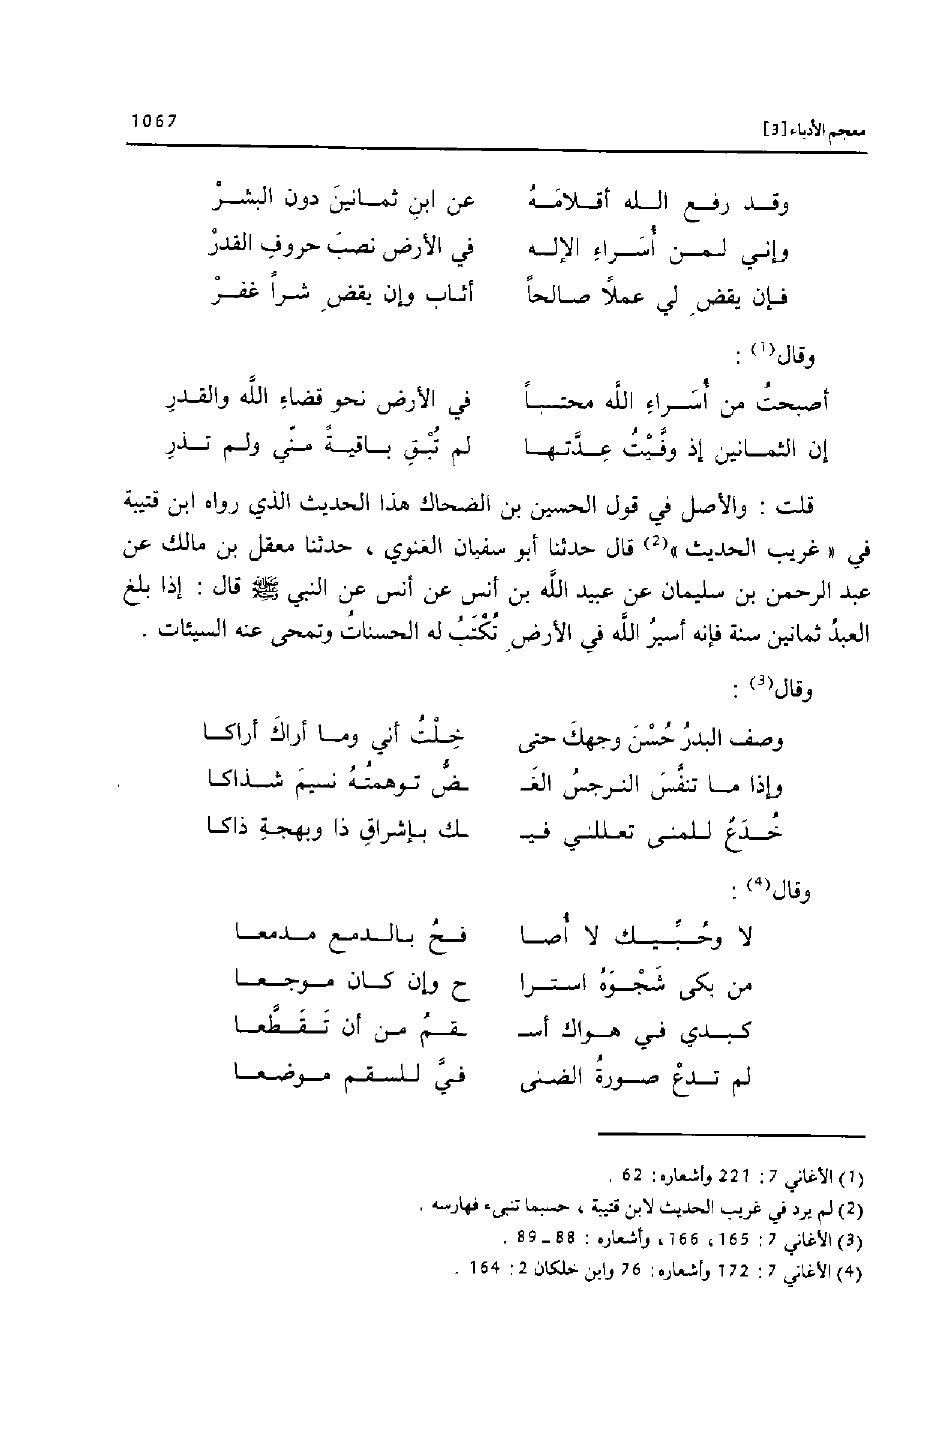 معجم الأدباء [3] 1067
وقد رفع الله أقلامَهُ عن ابن ثمانينَ دون البشرْ
وإني لمن أُسَراء الإله في الأرض نصبَ حروفِ القدرْ
فإن يقضِ لي عملاً صالحاً أثاب وإن يقضِ شراً غفرْ
وقال(1) :
أصبحتُ من أُسَراءِ اللَّه محتبساً في الأرض نحو قضاء اللَّه والقدرِ
إن الثمانين إذ وفَّيْتُ عِدَّتها لم تُبْقِ باقيةً منّي ولم تذرِ
قلت : والأصل في قول الحسين بن الضحاك هذا الحديث الذي رواه ابن قتيبة
في « غريب الحديث »(2) قال حدثنا أبو سفيان الغنوي ، حدثنا معقل بن مالك عن
عبد الرحمن بن سليمان عن عبيد اللَّه بن أنس عن أنس عن النبي ﷺ قال : إذا بلغ
العبدُ ثمانين سنة فإنه أسيرُ اللَّه في الأرضِ تُكْتَبُ له الحسناتُ وتمحى عنه السيئات .
وقال(3) :
وصف البدرُ حُسْنَ وجهكَ حتى خِلْتُ أني وما أراكَ أراكا
وإذا ما تنفَّسَ النرجسُ الغَـ ـضُّ توهمتُهُ نسيمَ شذاكا
خُدَعٌ للمنى تعللني فيـ ـك بإشراقِ ذا وبهجةِ ذاكا
وقال(4) :
لا وحُبِّيك لا أُصا فحُ بالدمع مدمعا
من بكى شَجْوَهُ استرا ح وإن كان موجعا
كبدي في هواك أسـ ـقمُ من أن تَقَطَّعا
لم تدعْ صورةُ الضنى فيَّ للسقم موضعا
(1) الأغاني 7 : 221 وأشعاره : 62 .
(2) لم يرد في غريب الحديث لابن قتيبة ، حسبما تنبىء فهارسه .
(3) الأغاني 7 : 165 ، 166 ، وأشعاره : 88 ـ 89 .
(4) الأغاني 7 : 172 وأشعاره : 76 وابن خلكان 2 : 164 .